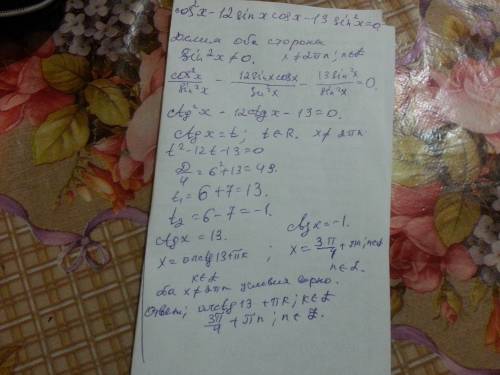 cos²x - 12 sin x cos x - 13 sin²x = 0
Делим обе стороны
sin²x ≠ 0. x ≠ 2πn; n∈Z
cos²x/sin²x - 12 sin x cos x/sin²x - 13 sin²x/sin²x = 0.
ctg²x - 12ctg x - 13 = 0.
ctg x = t; t∈R. x ≠ 2πn
t² - 12t - 13 = 0
D/4 = 6² + 13 = 49.
t₁ = 6 + 7 = 13.
t₂ = 6 - 7 = -1.
ctg x = 13. ctg x = -1.
x = arcctg 13 + πk ; x = 3π/4 + πn; n∈Z
k∈Z n∈Z.
x ≠ 2πn условия верно.
Ответ; arcctg 13 + πk; k∈Z
3π/4 + πn; n∈Z.